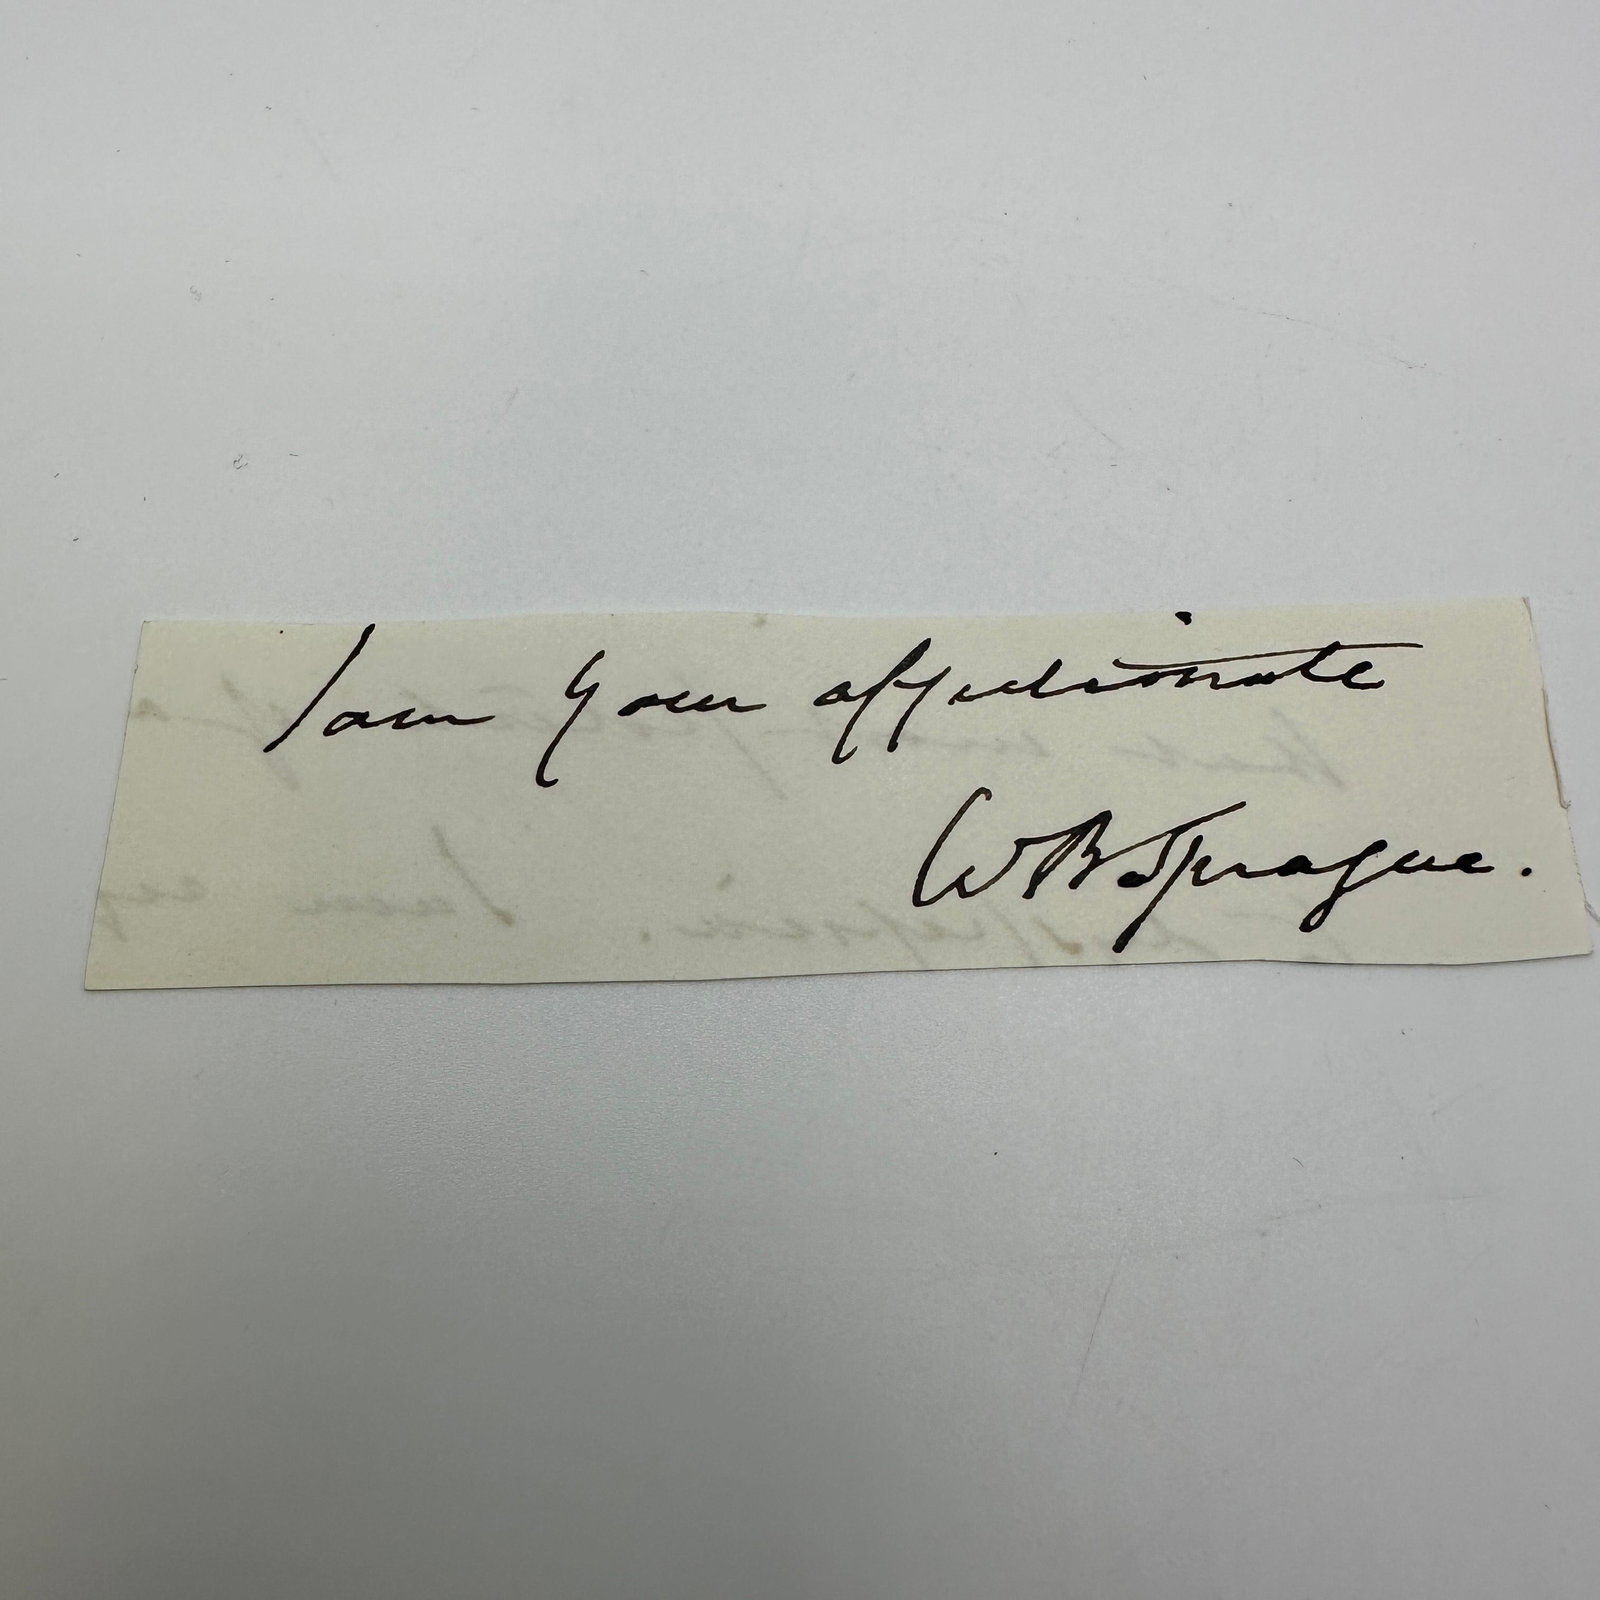 I am your affectionate
W B Sprague.